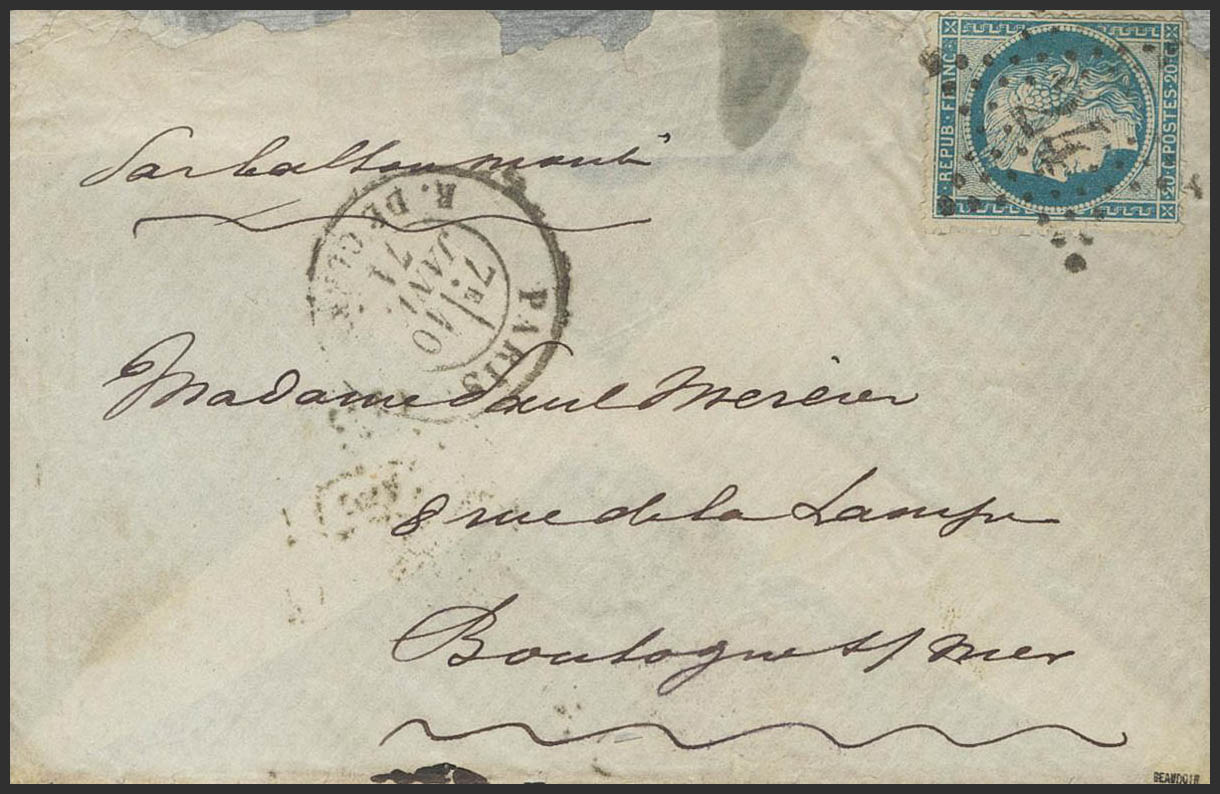 REPUB · FRANC ·
20 · C · POSTES · 20 · C
Par ballon monté
PARIS
R. DE CL
7E 10
JANV.
71
Madame Paul Mercier
8 rue de la Lampe
Boulogne s/ mer
BEAUDOIN